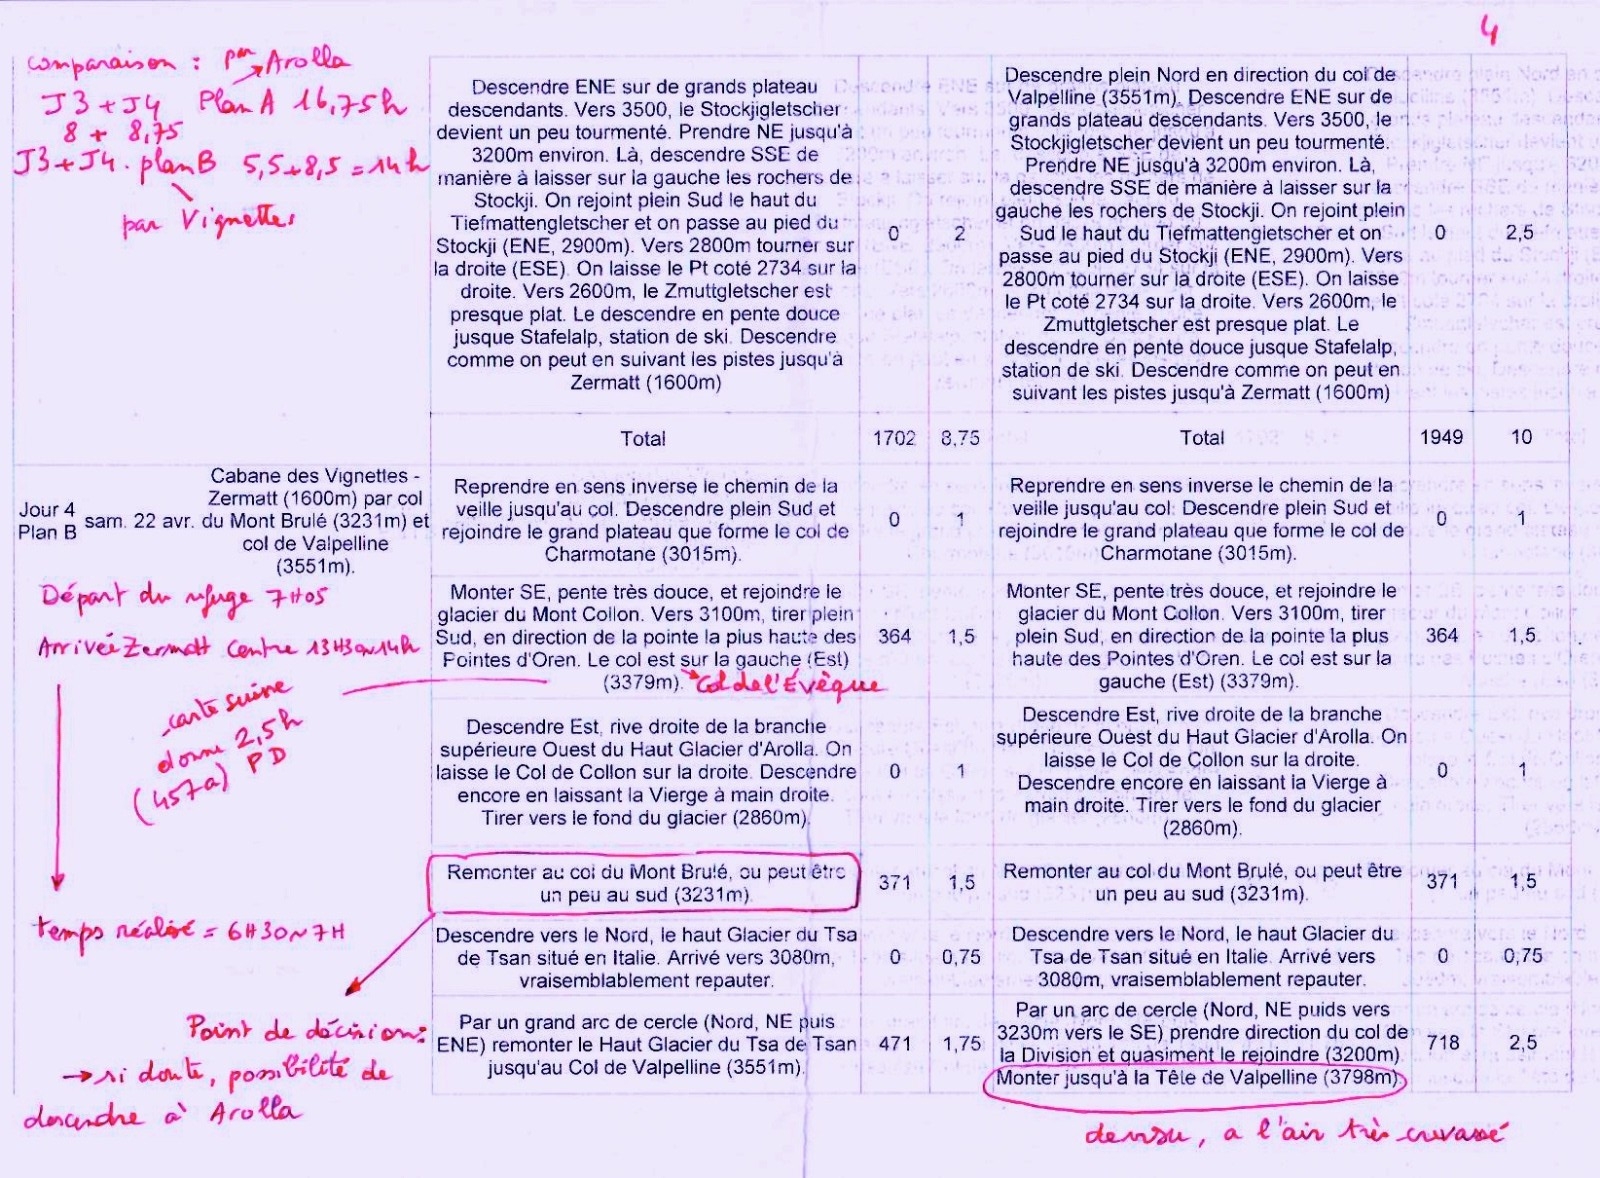 4
comparaison : par Arolla
J3 + J4 Plan A 16,75h
8 + 8,75
J3 + J4 . plan B 5,5+8,5 = 14h
par Vignettes
Descendre ENE sur de grands plateau
descendants. Vers 3500, le Stockjigletscher
devient un peu tourmenté. Prendre NE jusqu'à
3200m environ. Là, descendre SSE de
manière à laisser sur la gauche les rochers de
Stockji. On rejoint plein Sud le haut du
Tiefmattengletscher et on passe au pied du
Stockji (ENE, 2900m). Vers 2800m tourner sur
la droite (ESE). On laisse le Pt coté 2734 sur la
droite. Vers 2600m, le Zmuttgletscher est
presque plat. Le descendre en pente douce
jusque Stafelalp, station de ski. Descendre
comme on peut en suivant les pistes jusqu'à
Zermatt (1600m)
0 2
Descendre plein Nord en direction du col de
Valpelline (3551m). Descendre ENE sur de
grands plateau descendants. Vers 3500, le
Stockjigletscher devient un peu tourmenté.
Prendre NE jusqu'à 3200m environ. Là,
descendre SSE de manière à laisser sur la
gauche les rochers de Stockji. On rejoint plein
Sud le haut du Tiefmattengletscher et on
passe au pied du Stockji (ENE, 2900m). Vers
2800m tourner sur la droite (ESE). On laisse
le Pt coté 2734 sur la droite. Vers 2600m, le
Zmuttgletscher est presque plat. Le
descendre en pente douce jusque Stafelalp,
station de ski. Descendre comme on peut en
suivant les pistes jusqu'à Zermatt (1600m)
0 2,5
Total 1702 8,75 Total 1949 10
Jour 4
Plan B
sam. 22 avr.
Cabane des Vignettes -
Zermatt (1600m) par col
du Mont Brulé (3231m) et
col de Valpelline
(3551m).
Reprendre en sens inverse le chemin de la
veille jusqu'au col. Descendre plein Sud et
rejoindre le grand plateau que forme le col de
Charmotane (3015m).
0 1
Reprendre en sens inverse le chemin de la
veille jusqu'au col. Descendre plein Sud et
rejoindre le grand plateau que forme le col de
Charmotane (3015m).
0 1
Départ du refuge 7H05
Arrivée Zermatt centre 13H30~14h
Monter SE, pente très douce, et rejoindre le
glacier du Mont Collon. Vers 3100m, tirer plein
Sud, en direction de la pointe la plus haute des
Pointes d'Oren. Le col est sur la gauche (Est)
(3379m). Col de l'Évèque
364 1,5
Monter SE, pente très douce, et rejoindre le
glacier du Mont Collon. Vers 3100m, tirer
plein Sud, en direction de la pointe la plus
haute des Pointes d'Oren. Le col est sur la
gauche (Est) (3379m).
364 1,5
carte suisse
donne 2,5h
(457a) PD
Descendre Est, rive droite de la branche
supérieure Ouest du Haut Glacier d'Arolla. On
laisse le Col de Collon sur la droite. Descendre
encore en laissant la Vierge à main droite.
Tirer vers le fond du glacier (2860m).
0 1
Descendre Est, rive droite de la branche
supérieure Ouest du Haut Glacier d'Arolla. On
laisse le Col de Collon sur la droite.
Descendre encore en laissant la Vierge à
main droite. Tirer vers le fond du glacier
(2860m).
0 1
Remonter au col du Mont Brulé, ou peut être
un peu au sud (3231m).
371 1,5
Remonter au col du Mont Brulé, ou peut être
un peu au sud (3231m).
371 1,5
temps réalisé = 6H30~7H
Descendre vers le Nord, le haut Glacier du Tsa
de Tsan situé en Italie. Arrivé vers 3080m,
vraisemblablement repauter.
0 0,75
Descendre vers le Nord, le haut Glacier du
Tsa de Tsan situé en Italie. Arrivé vers
3080m, vraisemblablement repauter.
0 0,75
Point de décision:
→ si doute, possibilité de
descendre à Arolla
Par un grand arc de cercle (Nord, NE puis
ENE) remonter le Haut Glacier du Tsa de Tsan
jusqu'au Col de Valpelline (3551m).
471 1,75
Par un arc de cercle (Nord, NE puids vers
3230m vers le SE) prendre direction du col de
la Division et quasiment le rejoindre (3200m).
Monter jusqu'à la Tête de Valpelline (3798m)
718 2,5
dessus, a l'air très crevassé